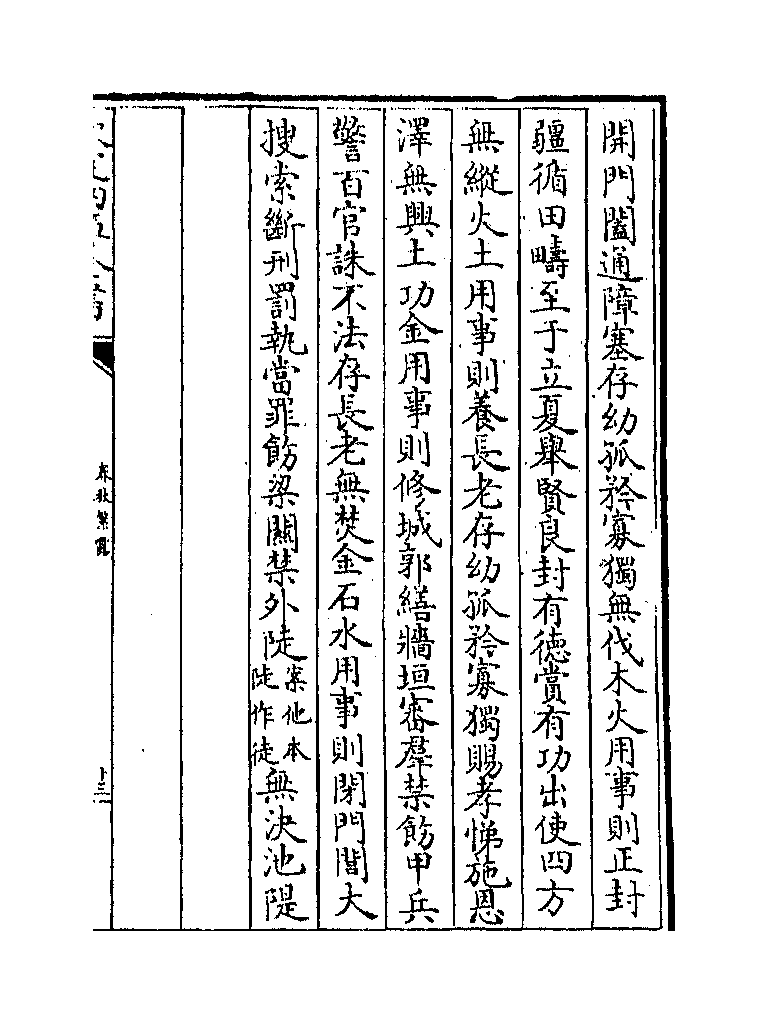 開門闔通障塞存幼孤矜寡獨無伐木火用事則正封
疆循田疇至于立夏舉賢良封有德賞有功出使四方
無縱火土用事則養長老存幼孤矜寡獨賜孝悌施恩
澤無興土功金用事則修城郭繕牆垣審羣禁飭甲兵
警百官誅不法存長老無焚金石水用事則閉門閭大
搜索斷刑罰執當罪飭梁關禁外陡案他本陡作徒無決池隄
春秋繁露
十三